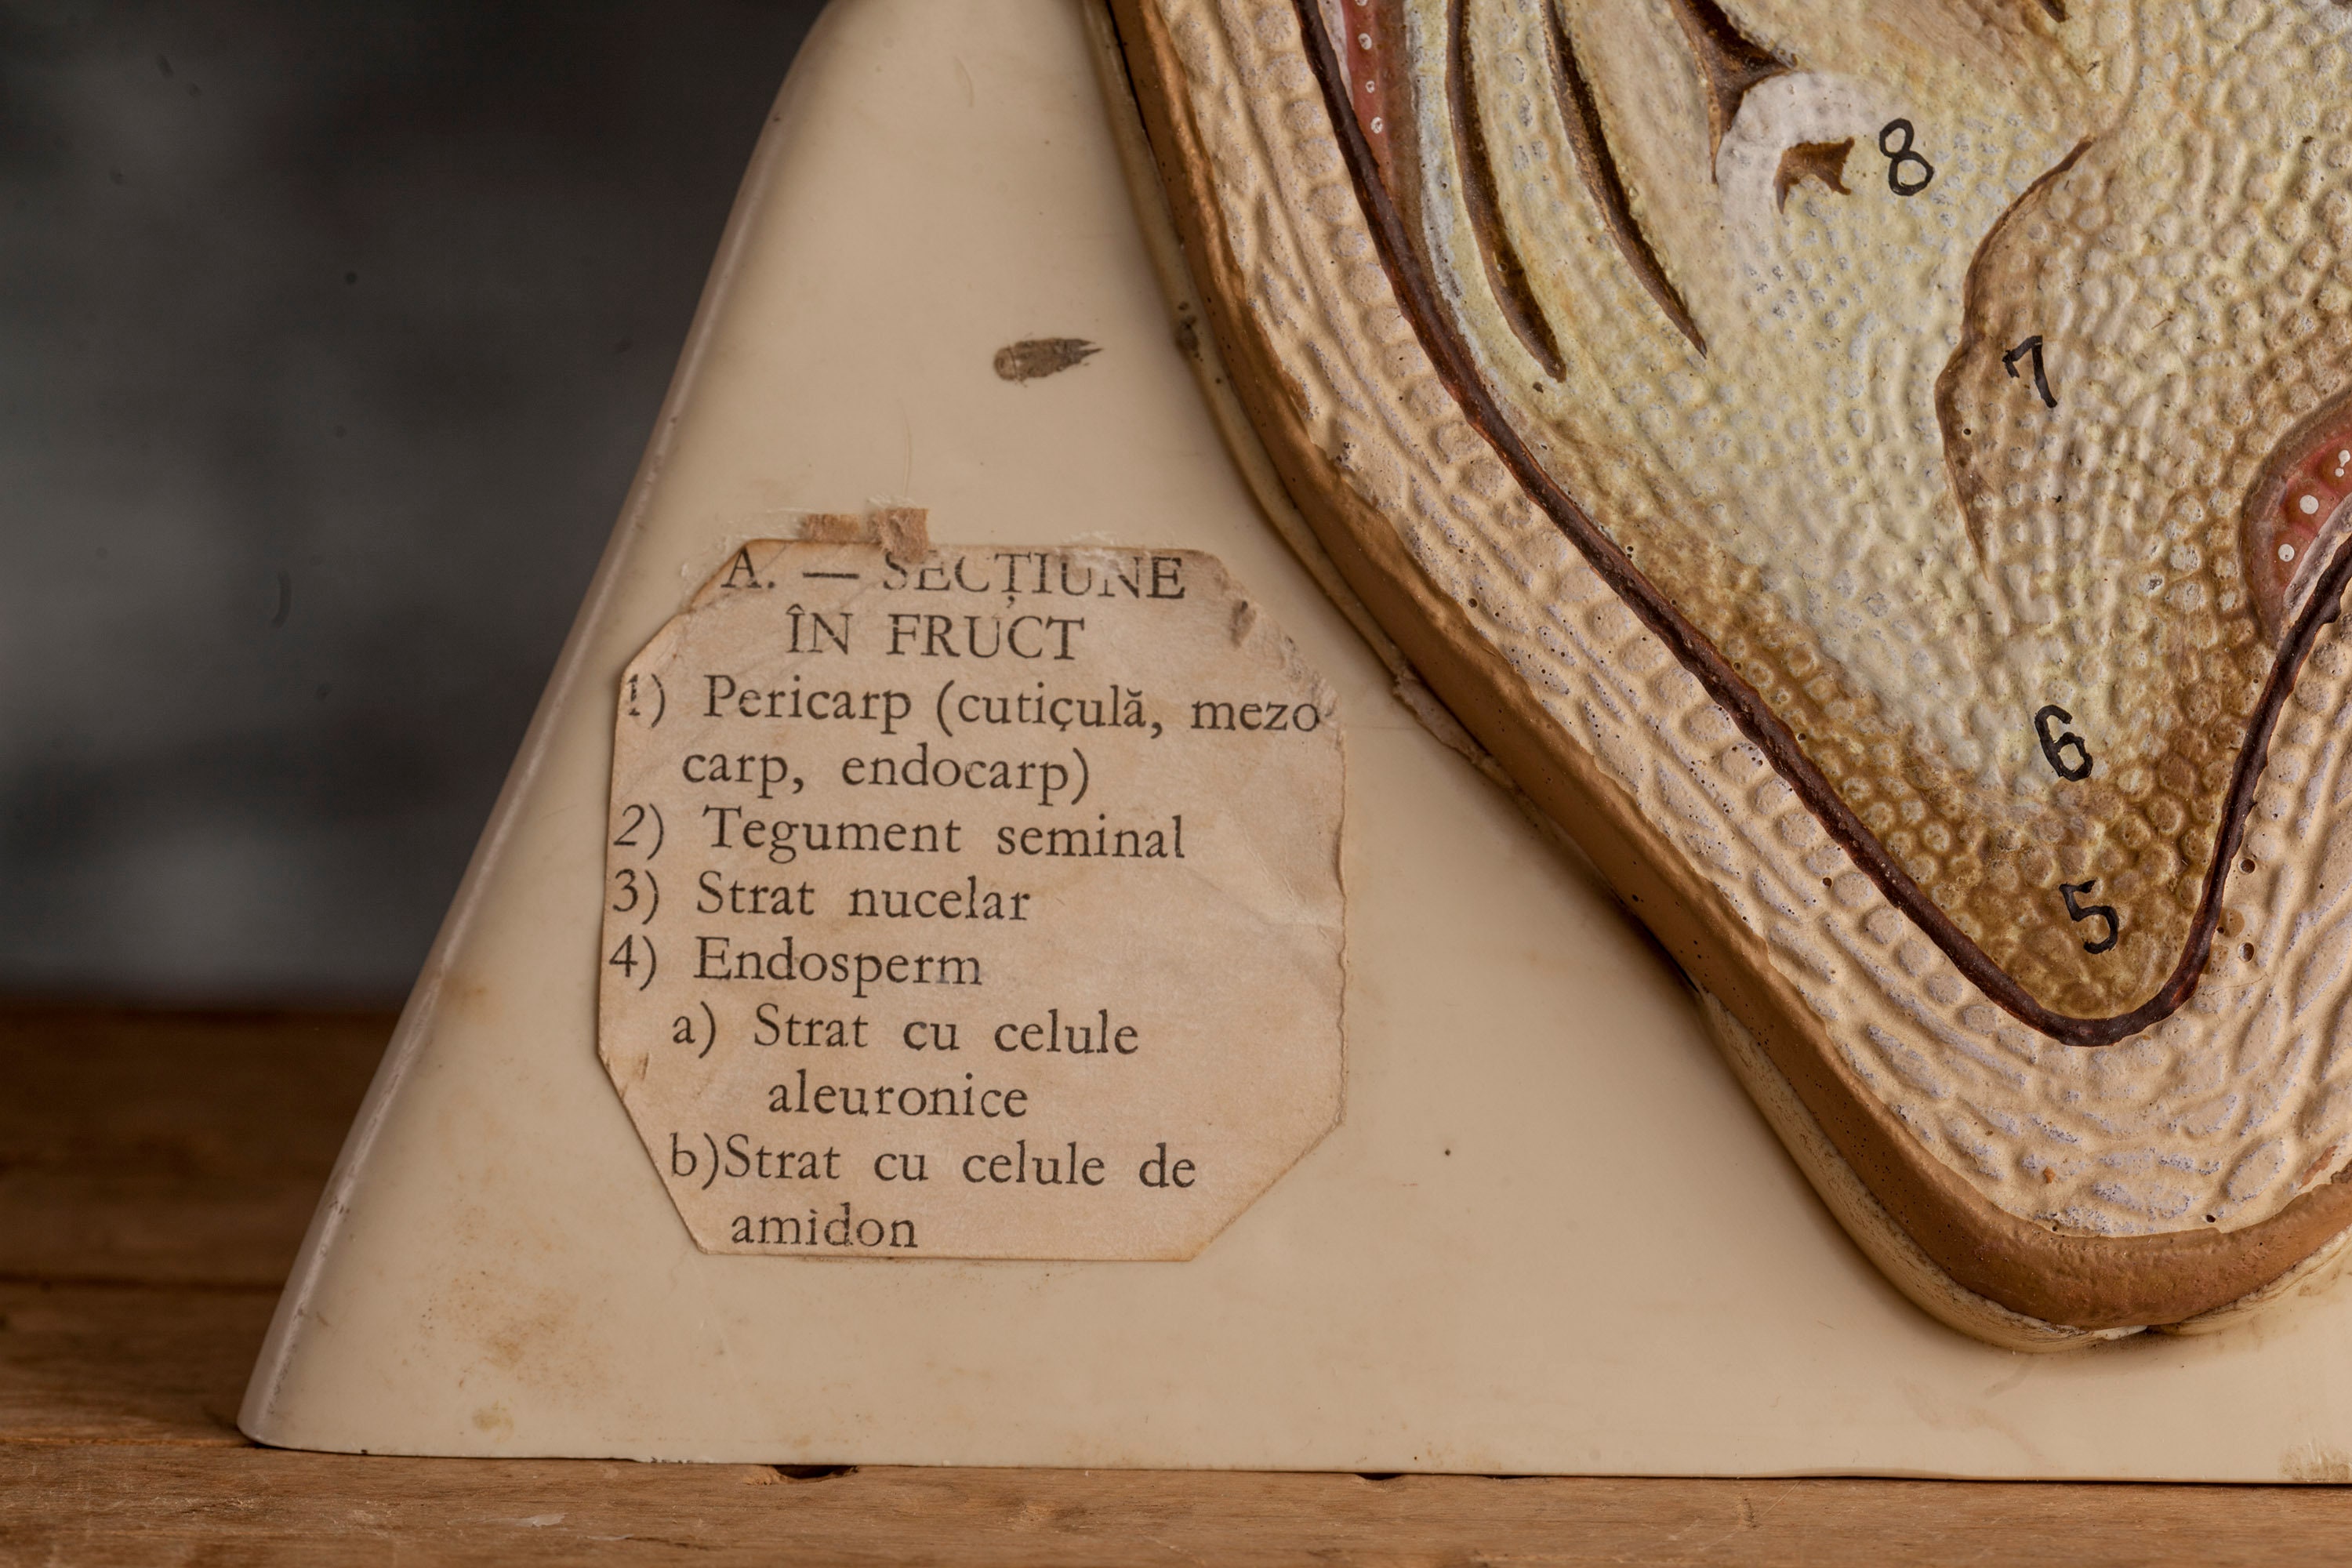 A. — SECȚIUNE
ÎN FRUCT
1) Pericarp (cutiçulă, mezo
carp, endocarp)
2) Tegument seminal
3) Strat nucelar
4) Endosperm
a) Strat cu celule
aleuronice
b)Strat cu celule de
amidon
8
7
6
5